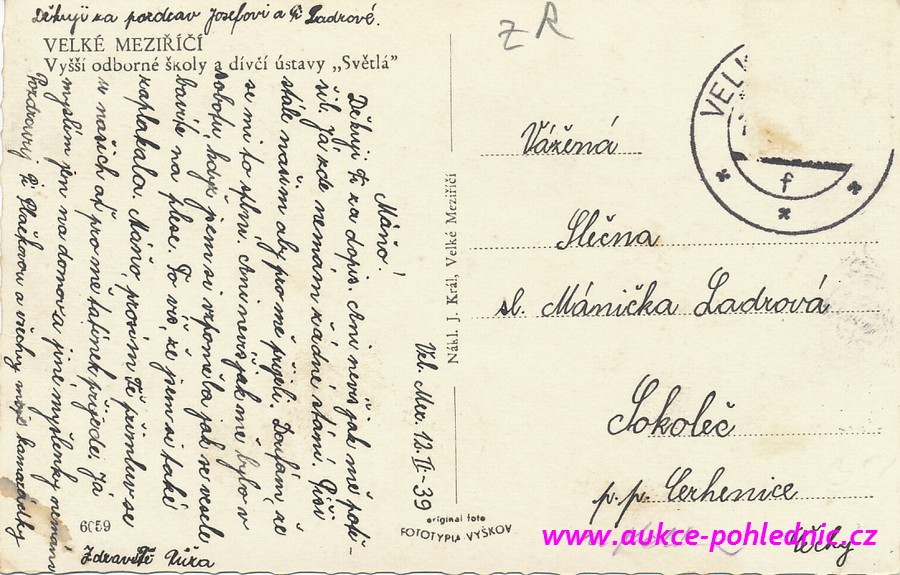 Děkuji za pozdrav Josefovi a Fr. Ladrové.
VELKÉ MEZIŘÍČÍ
Vyšší odborné školy a dívčí ústavy „Světlá"
Máňo!
Děkuji Ti za dopis. Ani nevíš jak mě potě-
šil. Já zde nemám žádné stání. Píši
stále našim aby pro mě přijeli. Doufám že
se mi to splní. Ani nevíš jak mě bylo v
sobotu, když jsem si vzpoměla jak se vesele
bavíte na plese. To víš, že jsem si také
zaplakala. Máňo, prosím Tě přimluv se
u našich ať pro mě tatínek přijede. Já
myslím jen na domov a jiné myšlenky nemám.
Pozdravuj a všechny moje kamarádky
Zdraví Tě Růža
6059
Vel. Mez. 13. II - 39
Nákl. J. Král, Velké Meziříčí
original foto
FOTOTYPIA VYŠKOV
ZR
VEL
f
Vážená
Slečna
sl. Mánička Ladrová
Sokoleč
p. p. Cerhenice
Čechy
www.aukce-pohlednic.cz